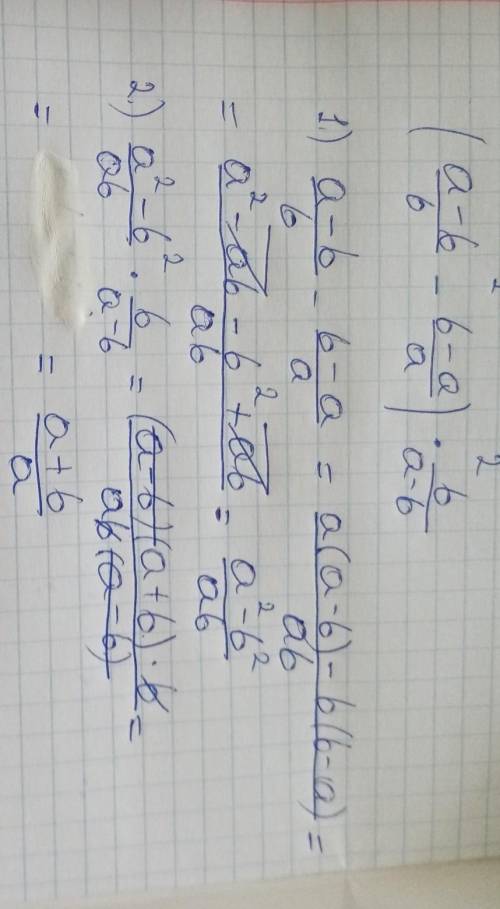 2 2
( \frac{a-b}{b} - \frac{b-a}{a} ) · \frac{b}{a-b}
1.) \frac{a-b}{b} - \frac{b-a}{a} = \frac{a(a-b)-b(b-a)}{ab} =
= \frac{a²-ab-b²+ab}{ab} = \frac{a²-b²}{ab}
2.) \frac{a²-b²}{ab} · \frac{b}{a-b} = \frac{(a-b)(a+b)·b}{ab(a-b)} =
= = \frac{a+b}{a}